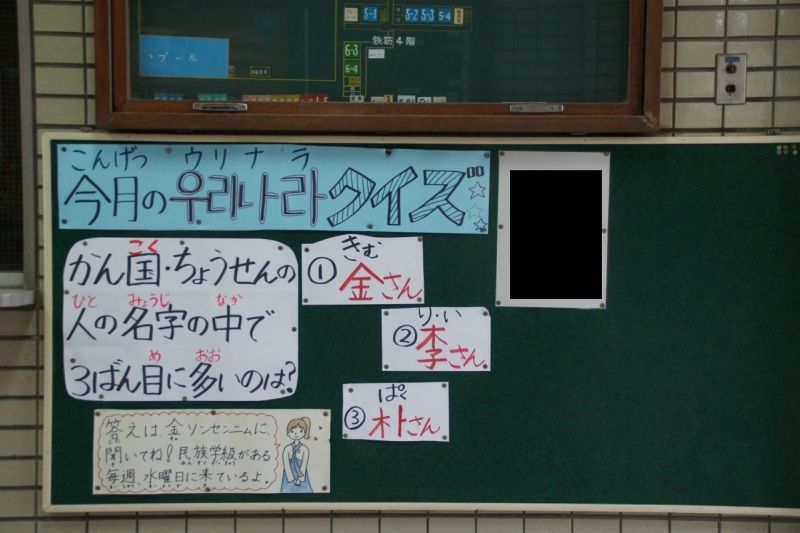 5-1
5-2 5-3 5-4
鉄筋4階
6-3
6-4
プール
こんげつ ウリナラ
今月の우리나라クイズ
こく
かん国・ちょうせんの
ひと みょうじ なか
人の名字の中で
め おお
3ばん目に多いのは?
きむ
①金さん
り・い
②李さん
ぱく
③朴さん
答えは、金ソンセンニムに、
聞いてね!民族学級がある
毎週、水曜日に来ているよ。